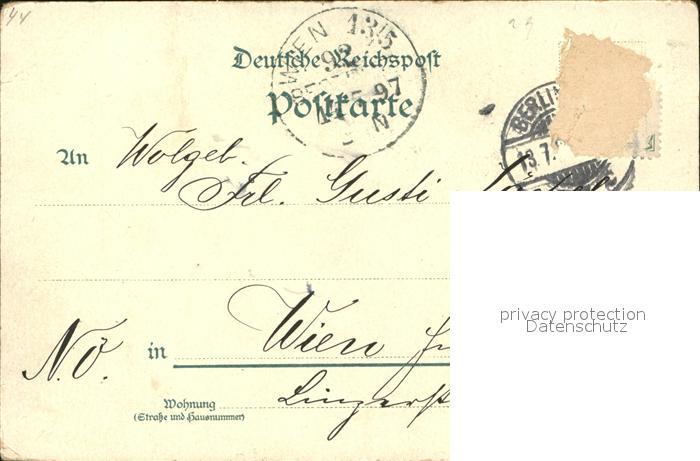 44 29
WIEN 13/5 92
97
N
Deutsche Reichspost
Postkarte
BERLIN
13.7.
An Wolgeb.
Frl. Gusti
privacy protection
Datenschutz
N.Ö. in Wien
Wohnung
(Straße und Hausnummer)
Linzerst